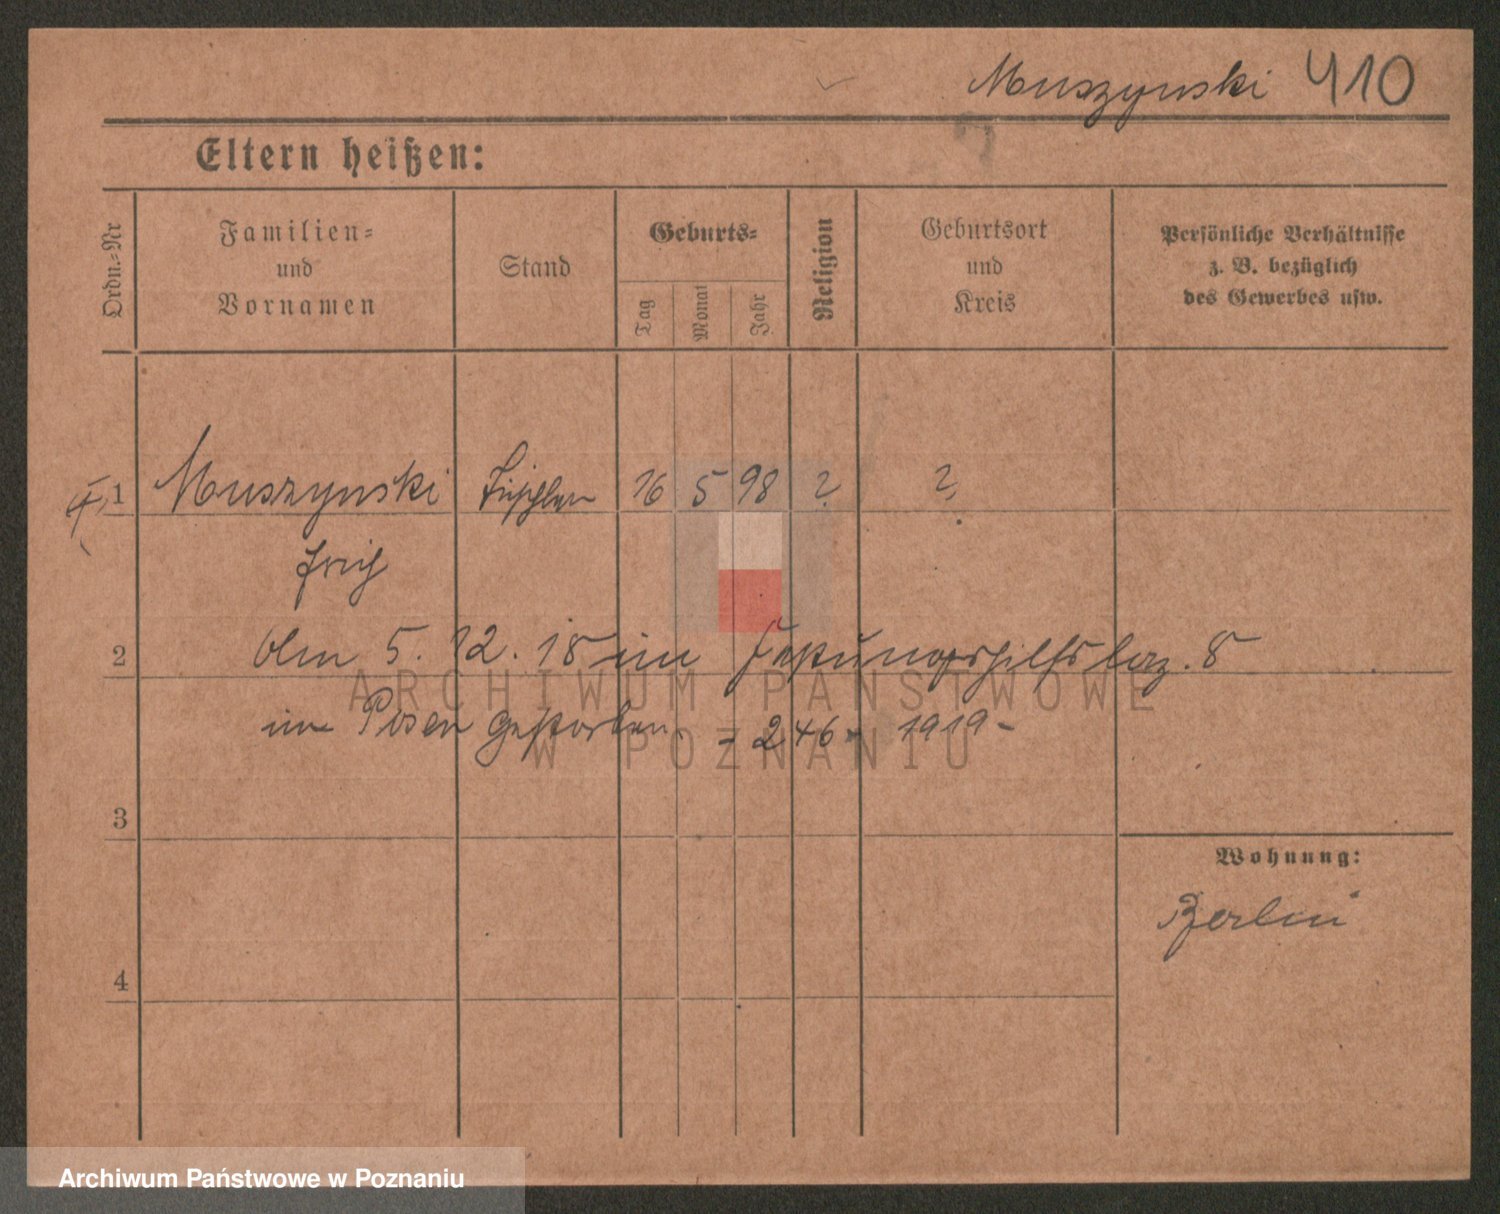 Muszynski 410
Eltern heißen:
Ordn.-Nr
Familien-
und
Vornamen
Stand
Geburts-
Tag
Monat
Jahr
Religion
Geburtsort
und
Kreis
Persönliche Verhältnisse
z. B. bezüglich
des Gewerbes usw.
1 Muszynski Tischler 16 5 98 ? ?
Erich
2 Am 5. 12. 18 im Festungshilfslaz. 8
in Posen gestorben. - 246 - 1919 -
3
4
Wohnung:
Berlin
ARCHIWUM PAŃSTWOWE
W POZNANIU
Archiwum Państwowe w Poznaniu